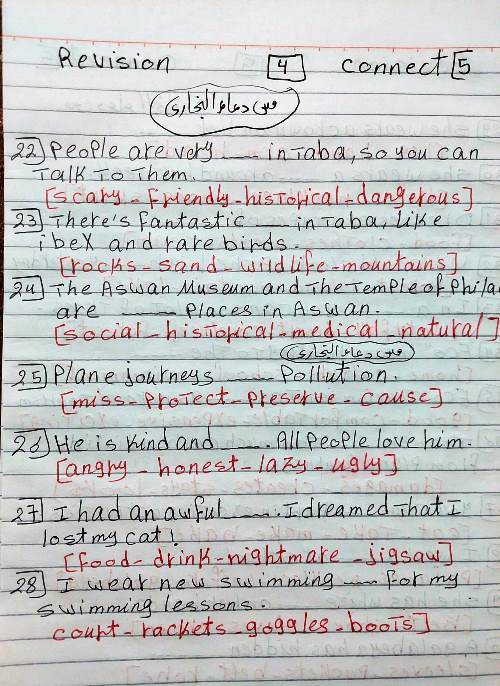 Revision 4 connect 5
مس دعاء النجارى
22 People are very ...... in Taba, so you can
Talk To Them.
[scary - friendly - historical - dangerous]
23 There's fantastic ...... in Taba, like
ibex and rare birds.
[rocks - sand - wildlife - mountains]
24 The Aswan Museum and The Temple of Philae
are ...... places in Aswan.
[social - historical - medical - natural]
مس دعاء النجارى
25 Plane journeys ...... Pollution.
[miss - protect - preserve - cause]
26 He is kind and ...... . All people love him.
[angry - honest - lazy - ugly]
27 I had an awful ...... . I dreamed That I
lost my cat!
[food - drink - nightmare - jigsaw]
28 I wear new swimming ...... for my
swimming lessons.
court - rackets - goggles - boots]